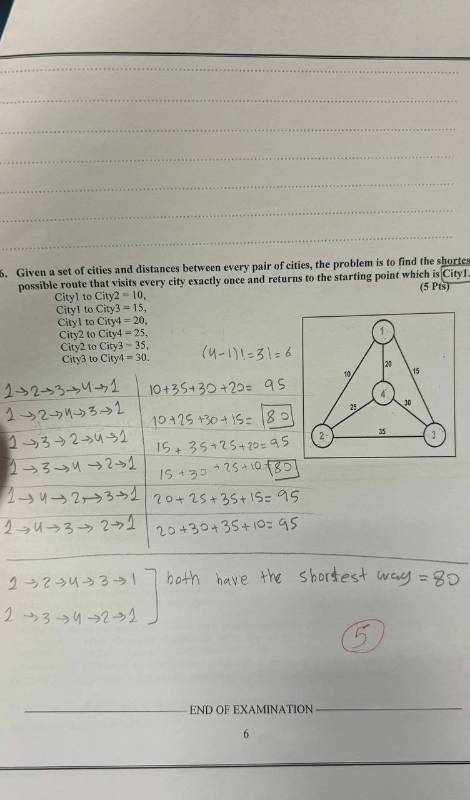 6. Given a set of cities and distances between every pair of cities, the problem is to find the shortes
possible route that visits every city exactly once and returns to the starting point which is City1.
(5 Pts)
City1 to City2 = 10,
City1 to City3 = 15,
City1 to City4 = 20,
City2 to City4 = 25,
City2 to City3 = 35,
City3 to City4 = 30.
(4-1)! = 3! = 6
1
20
10
15
4
25
30
2
35
3
1→2→3→4→1 10+35+30+20= 95
1→2→4→3→1 10+25+30+15= 80
1→3→2→4→1 15+35+25+20=95
1→3→4→2→1 15+30+25+10=80
1→4→2→3→1 20+25+35+15= 95
1→4→3→2→1 20+30+35+10=95
1→2→4→3→1 both have the shortest way = 80
1→3→4→2→1
5
END OF EXAMINATION
6